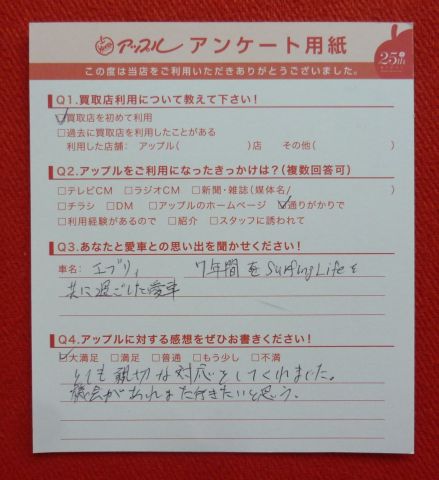 アップル アンケート用紙
この度は当店をご利用いただきありがとうございました。
25th
Q1.買取店利用について教えて下さい!
☑買取店を初めて利用
□過去に買取店を利用したことがある
利用した店舗: アップル( )店 その他( )
Q2.アップルをご利用になったきっかけは?(複数回答可)
□テレビCM □ラジオCM □新聞・雑誌(媒体名/ )
□チラシ □DM □アップルのホームページ ☑通りがかりで
□利用経験があるので □紹介 □スタッフに誘われて
Q3.あなたと愛車との思い出を聞かせください!
車名: エブリィ 7年間をSurfing Lifeを
共に過ごした愛車
Q4.アップルに対する感想をぜひお書きください!
☑大満足 □満足 □普通 □もう少し □不満
とても親切な対応をしてくれました。
機会があればまた行きたいと思う。